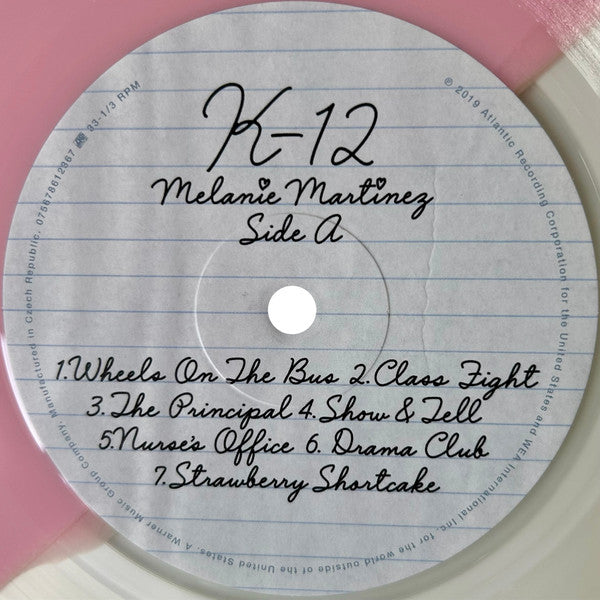 K-12
Melanie Martinez
Side A
1.Wheels On The Bus 2.Class Fight
3.The Principal 4.Show & Tell
5.Nurse's Office 6. Drama Club
7.Strawberry Shortcake
℗ 2019 Atlantic Recording Corporation for the United States and WEA International Inc. for the world outside of the United States. A Warner Music Group Company. Manufactured in Czech Republic. 075678612867 33-1/3 RPM